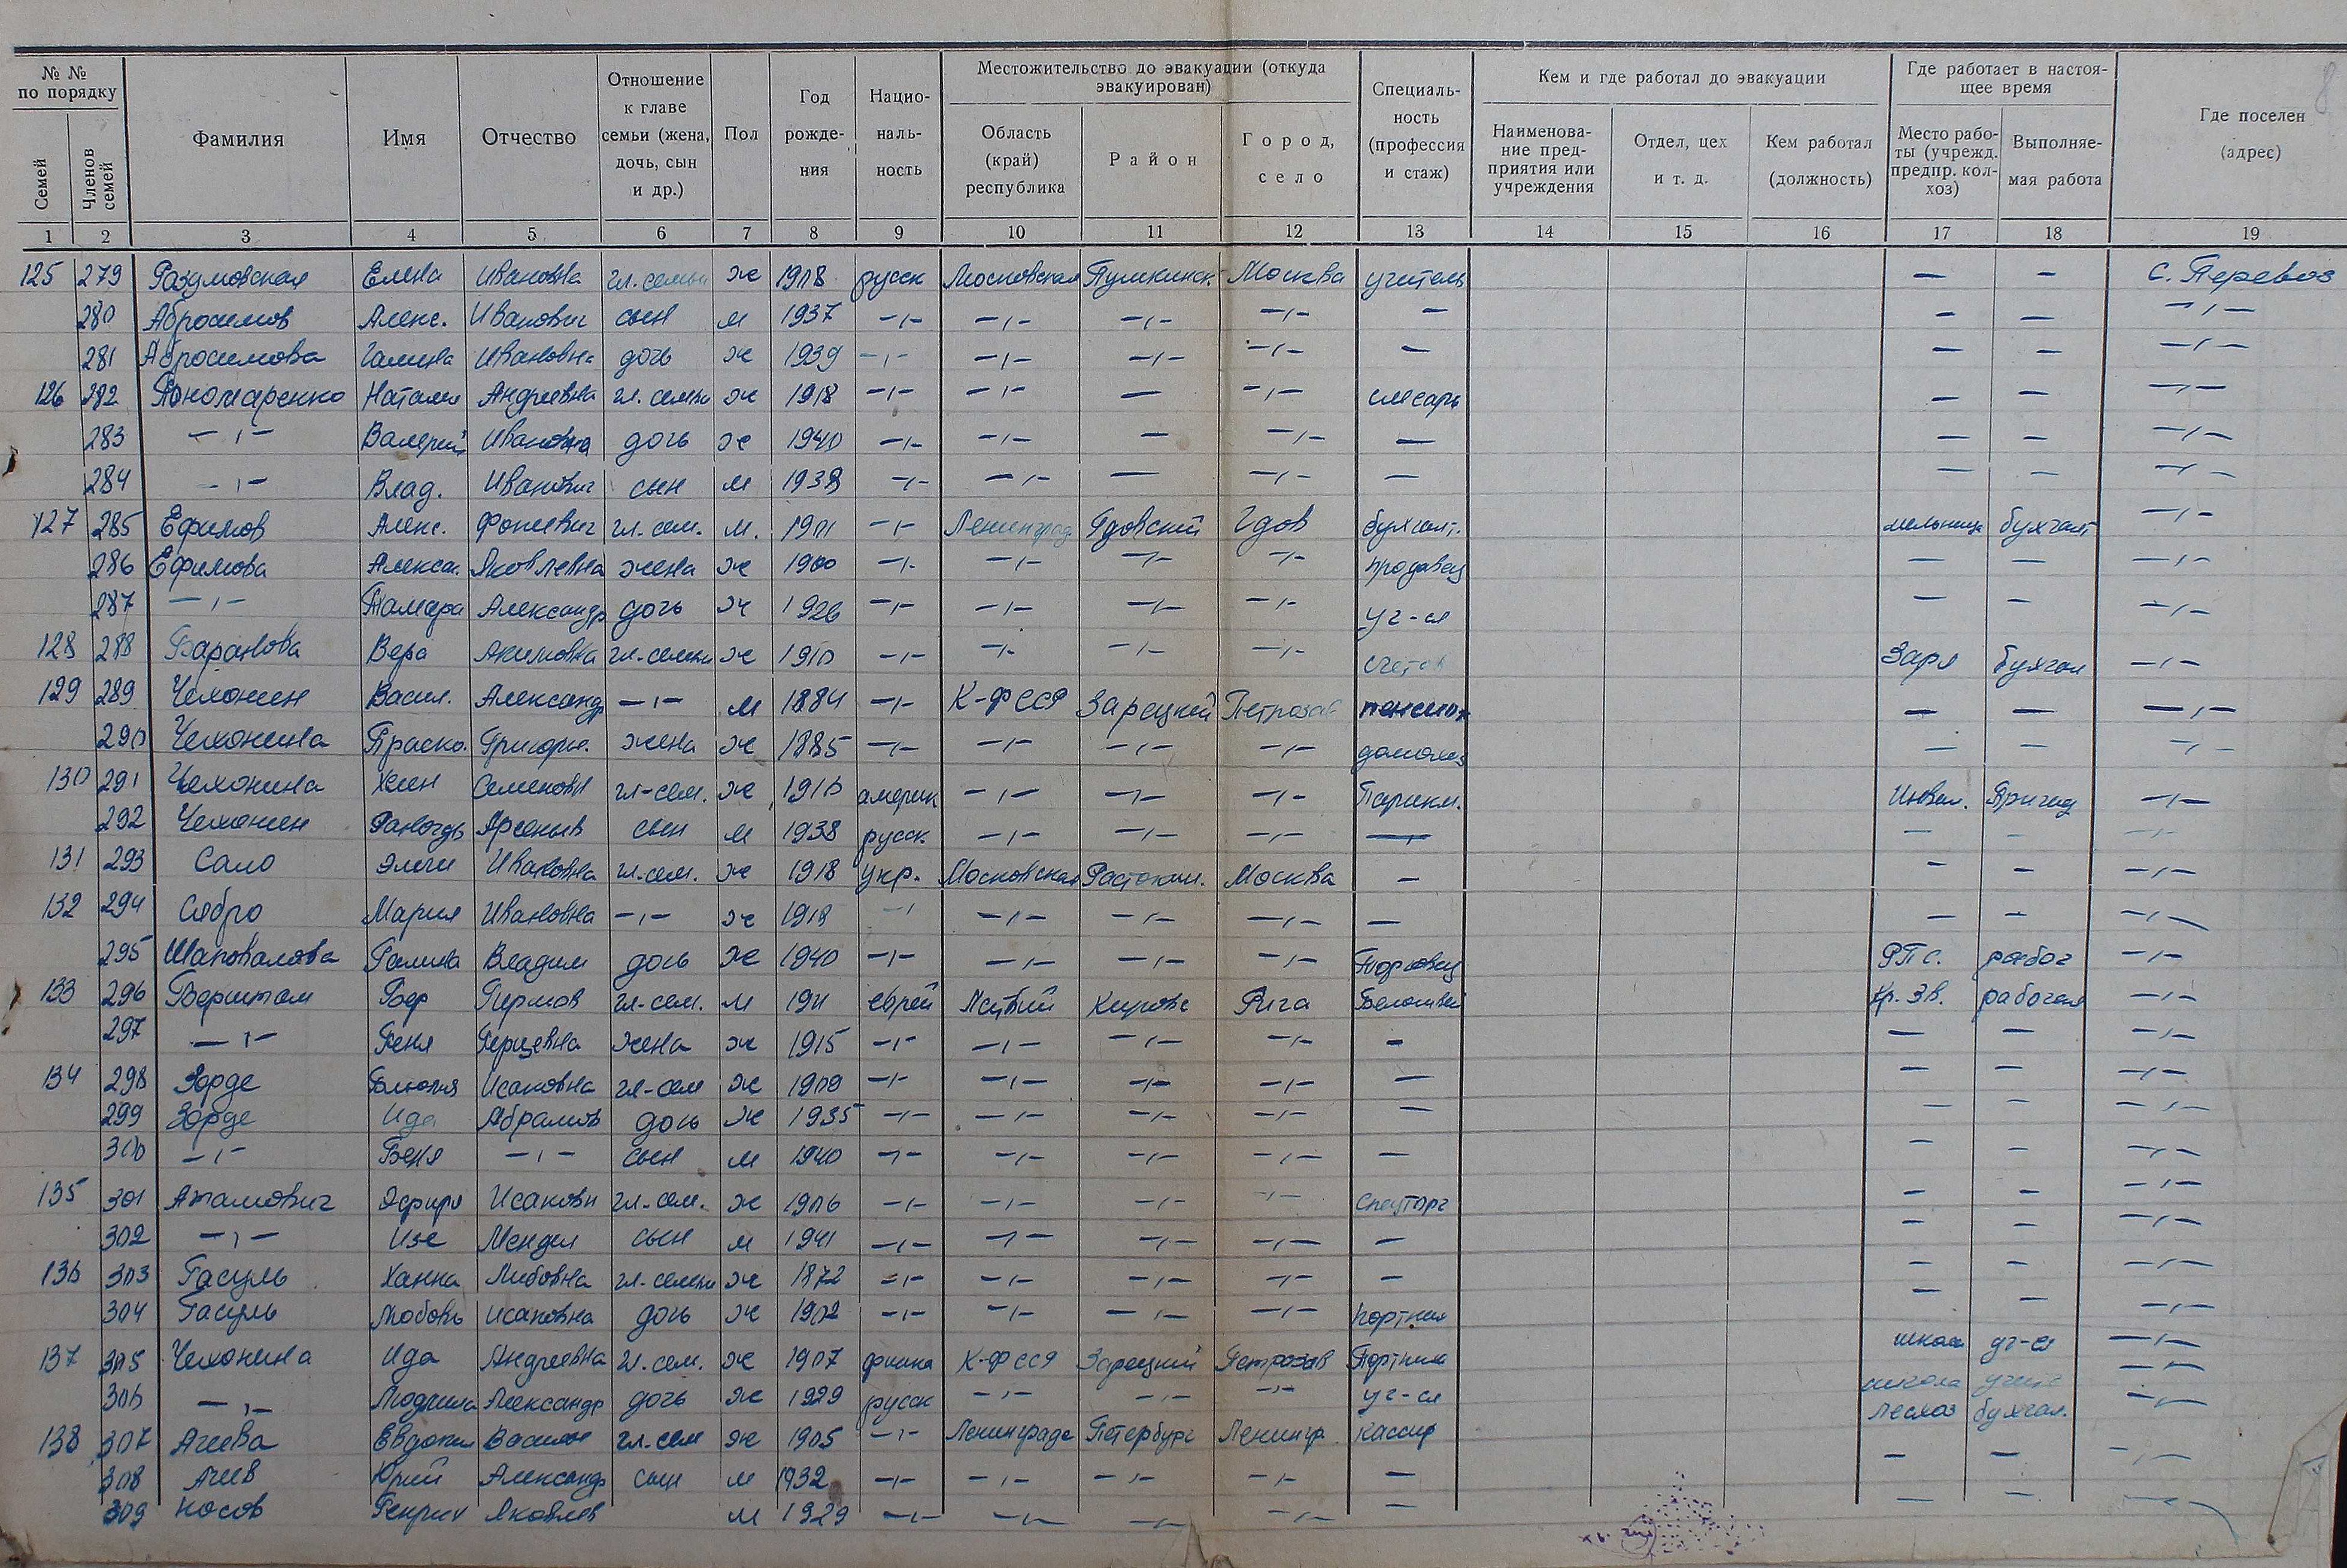 № № по порядку Фамилия Имя Отчество Отношение к главе семьи (жена, дочь, сын и др.) Пол Год рождения Национальность Местожительство до эвакуации (откуда эвакуирован) Специальность (профессия и стаж) Кем и где работал до эвакуации Где работает в настоящее время Где поселен (адрес) 8
Семей Членов семей Область (край) республика Район Город, село Наименование предприятия или учреждения Отдел, цех и т. д. Кем работал (должность) Место работы (учрежд. предпр. колхоз) Выполняемая работа
1 2 3 4 5 6 7 8 9 10 11 12 13 14 15 16 17 18 19
125 279 Разумовская Елена Ивановна гл. семьи ж 1918 русск Московская Пушкинск. Москва учитель — — с. Перевоз
280 Абросимов Алекс. Иванович сын м 1937 -"- -"- -"- -"- — — — -"-
281 Абросимова Галина Ивановна дочь ж 1939 -"- -"- -"- -"- — — — -"-
126 282 Пономаренко Наталия Андреевна гл. семьи ж 1918 -"- -"- — -"- слесарь — — -"-
283 -"- Валерий Ивановна дочь ж 1940 -"- -"- — -"- — — — -"-
284 -"- Влад. Иванович сын м 1938 -"- -"- — -"- — — — -"-
127 285 Ефимов Алекс. гл. сем. м. 1901 -"- Ленинград Гдовский Гдов бухгалт. мельница бухгалт -"-
286 Ефимова Алексан. Яковлевна жена ж 1900 -"- -"- -"- -"- продавец — — -"-
287 -"- Тамара Александр дочь ж 1926 -"- -"- -"- -"- уч-ся — — -"-
128 288 Баранова Вера Акимовна гл. семьи ж 1910 -"- -"- -"- -"- счетов Заря бухгал -"-
129 289 Чехонин Васил. Александр -"- м 1884 -"- К-ФССР Зарецкий Петрозав пенсион — — -"-
290 Чехонина Праско. Григорье. жена ж 1885 -"- -"- -"- -"- домохоз — — -"-
130 291 Чехонина Хелен Семеновн гл-сем. ж 1916 америк -"- -"- -"- Парикм. Инвал. Бригад -"-
292 Чехонин Арсеньев сын м 1938 русск -"- -"- -"- — — — -"-
131 293 Сало Ивановна гл. сем. ж 1918 укр. Московская Растокин. Москва — — — -"-
132 294 Сябро Мария Ивановна -"- ж 1918 -"- -"- -"- -"- — — — -"-
295 Шаповалова Галина Владим дочь ж 1940 -"- -"- -"- -"- Торговец РПС. рабоч -"-
133 296 Берштам Бер Гиршов гл. сем. м 1911 еврей Латвий Кировс Рига Кр. Зв. рабочая -"-
297 -"- Геня Герцевна жена ж 1915 -"- -"- -"- -"- — — — -"-
134 298 Зорде Исаковна гл-сем ж 1909 -"- -"- -"- -"- — — — -"-
299 Зорде Ида Абрамов дочь ж 1935 -"- -"- -"- -"- — — — -"-
300 -"- Беня -"- сын м 1940 -"- -"- -"- -"- — — — -"-
135 301 Атамович Эсфирь Исаковн гл. сем. ж 1906 -"- -"- -"- -"- — — -"-
302 -"- Изе Мендел сын м 1941 -"- -"- -"- -"- — — — -"-
136 303 Гасуль Ханна Либовна гл. семьи ж 1872 -"- -"- -"- -"- — — — -"-
304 Гасуль Любовь Исаковна дочь ж 1902 -"- -"- -"- -"- портниха — — -"-
137 305 Чехонина Ида Андреевна гл. сем. ж 1907 финка К-ФССР Зарецкий Петрозав Портниха школа уч-ся -"-
306 -"- Людмила Александр дочь ж 1929 русск -"- -"- -"- уч-ся школа -"-
138 307 Агеева Евдокия Василье гл. сем ж 1905 -"- Ленинград Петербург Ленингр. кассир лесхоз бухгал. -"-
308 Агеев Юрий Александр сын м 1932 -"- -"- -"- -"- — — — -"-
309 Носов Генрих Яковлев м 1929 -"- -"- -"- -"- — — — -"-